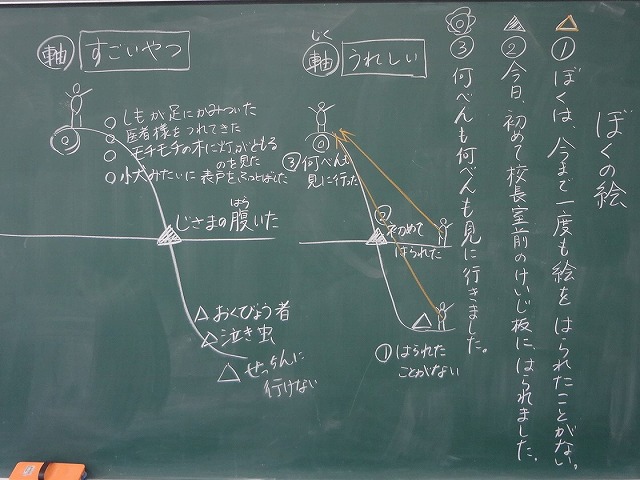 ぼくの絵
①ぼくは、今まで一度も絵をはられたことがない。
②今日、初めて校長室前のけいじ板に、はられました。
③何べんも何べんも見に行きました。
じく
軸 うれしい
③何べんも
見に行った
②初めて
はられた
①はられた
ことがない
軸 すごいやつ
しもが足にかみついた
医者様をつれてきた
モチモチの木に灯がともる
のを見た
小犬みたいに表戸をふっとばした
はら
じさまの腹いた
おくびょう者
泣き虫
せっちんに
行けない